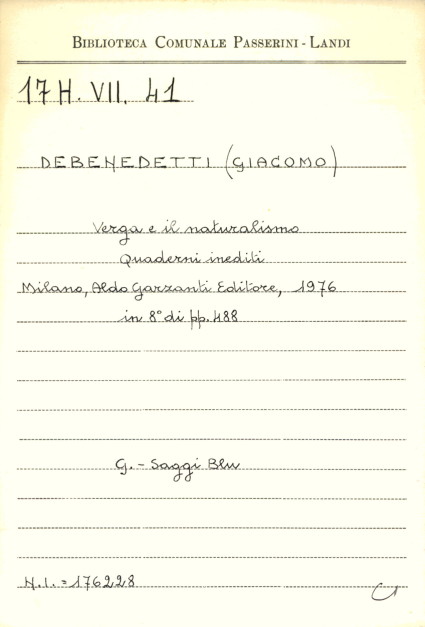 BIBLIOTECA COMUNALE PASSERINI - LANDI
17 H. VII. 41
DEBENEDETTI (GIACOMO)
Verga e il naturalismo
Quaderni inediti
Milano, Aldo Garzanti Editore, 1976
in 8° di pp. 488
G. - Saggi Blu
N.I. = 176228